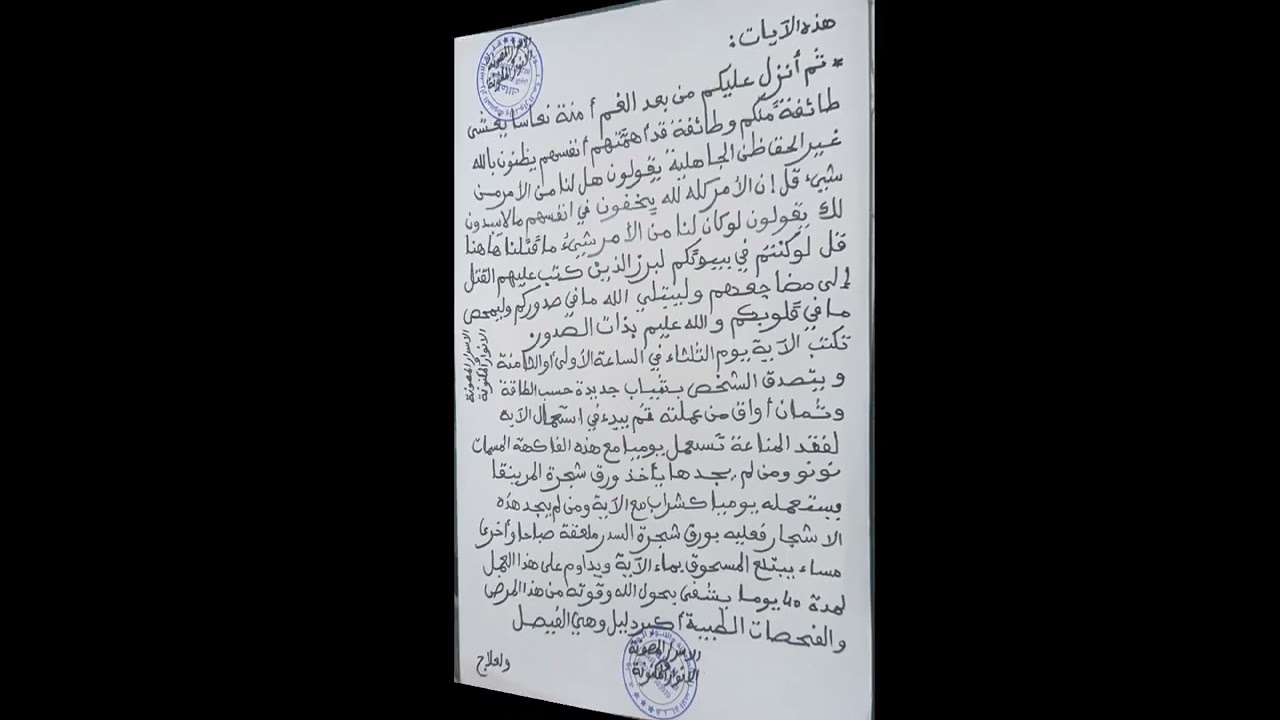 هذه الآيات:
* ثم أنزل عليكم من بعد الغم أمنة نعاسا يغشى
طائفة منكم وطائفة قد أهمتهم أنفسهم يظنون بالله
غير الحق ظن الجاهلية يقولون هل لنا من الأمر من
شيء قل إن الأمر كله لله يخفون في انفسهم مالا يبدون
لك يقولون لو كان لنا من الأمر شيء ما قتلنا هاهنا
قل لو كنتم في بيوتكم لبرز الذين كتب عليهم القتل
إلى مضاجعهم وليبتلي الله ما في صدوركم وليمحص
ما في قلوبكم والله عليم بذات الصدور
تكتب الآية يوم الثلثاء في الساعة الأولى أو الثامنة
و يتصدق الشخص بثياب جديدة حسب الطاقة
وثمان أواق من عملته ثم يبدء في استعمال الآية
لفقد المناعة تستعمل يوميا مع هذه الفاكهة المسمات
نونو ومن لم يجدها يأخذ ورق شجرة المرينقا
يستعمله يوميا كشراب مع الآية ومن لم يجد هذه
الاشجار فعليه بورق شجرة السدر ملعقة صباحا وأخرى
مساء يبتلع المسحوق بماء الآية ويداوم على هذا العمل
لمدة 40 يوما يشفى بحول الله وقوته من هذا المرض
والفحصات الطبية أكبر دليل وهي الفيصل
ولعلاج
الاسرار المصونة
الانوار المكنونة
الاسرار المصونة
و
الانوار المكنونة
الاسرار المصونة
الانوار المكنونة